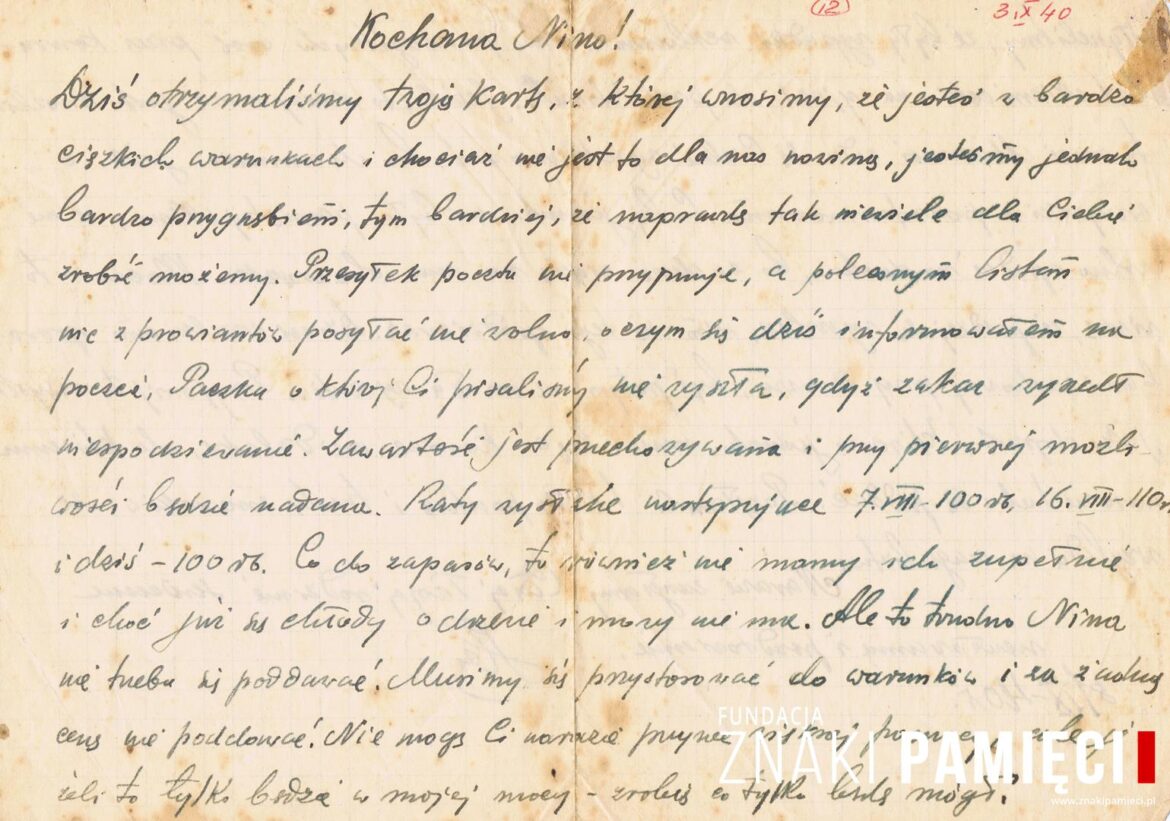 (12) 3.IX 40
Kochana Nino!
Dziś otrzymaliśmy twoją kartę, z której wnosimy, że jesteś w bardzo
ciężkich warunkach i chociaż nie jest to dla nas nowiną, jesteśmy jednak
bardzo przygnębieni, tym bardziej, że naprawdę tak niewiele dla Ciebie
zrobić możemy. Przesyłek poczta nie przyjmuje, a poleconym listem
nic z prowiantów posyłać nie wolno, o czym się dziś informowałem na
poczcie. Paczka o której Ci pisaliśmy nie wyszła, gdyż zakaz wyszedł
niespodziewanie. Zawartość jest przechowywana i przy pierwszej możli-
wości będzie nadana. Raty wysłane następujące 7.VIII-100 rb, 16.VIII-110
i dziś - 100 rb. Co do zapasów, to również nie mamy ich zupełnie
i choć już są chłody odzienie i mamy nie ma. Ale to trudno Nina
nie trzeba się poddawać! Musimy się przystosować do warunków i za żadną
cenę nie poddawać! Nie mogę Ci narazie pomocy, ale
żeli to tylko będzie w mojej mocy - zrobię co tylko będę mógł.
FUNDACJA
ZNAKI PAMIĘCI
www.znakipamieci.pl